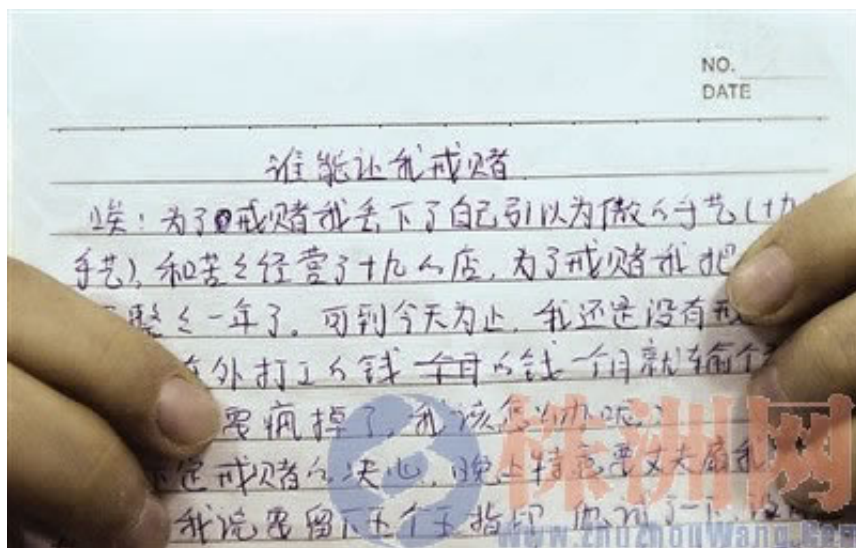 NO.
DATE
谁能让我戒赌
唉!为了戒赌我丢下了自己引以为傲的手艺(十九
手艺),和苦々经营了十几的店,为了戒赌我把
整々一年了。可到今天为止,我还是没有戒
在外打工的钱一个月的钱一个月就输个
要疯掉了,我该怎么办呢?
下定戒赌的决心,晚上特意要丈夫扇我
我说要留下五个手指印,他对了一下,没
株洲网
www.zhuzhouwang.com